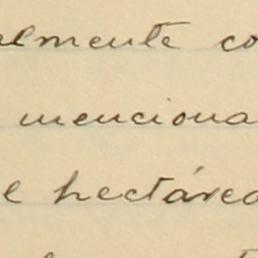 almente co
menciona
e hectárea